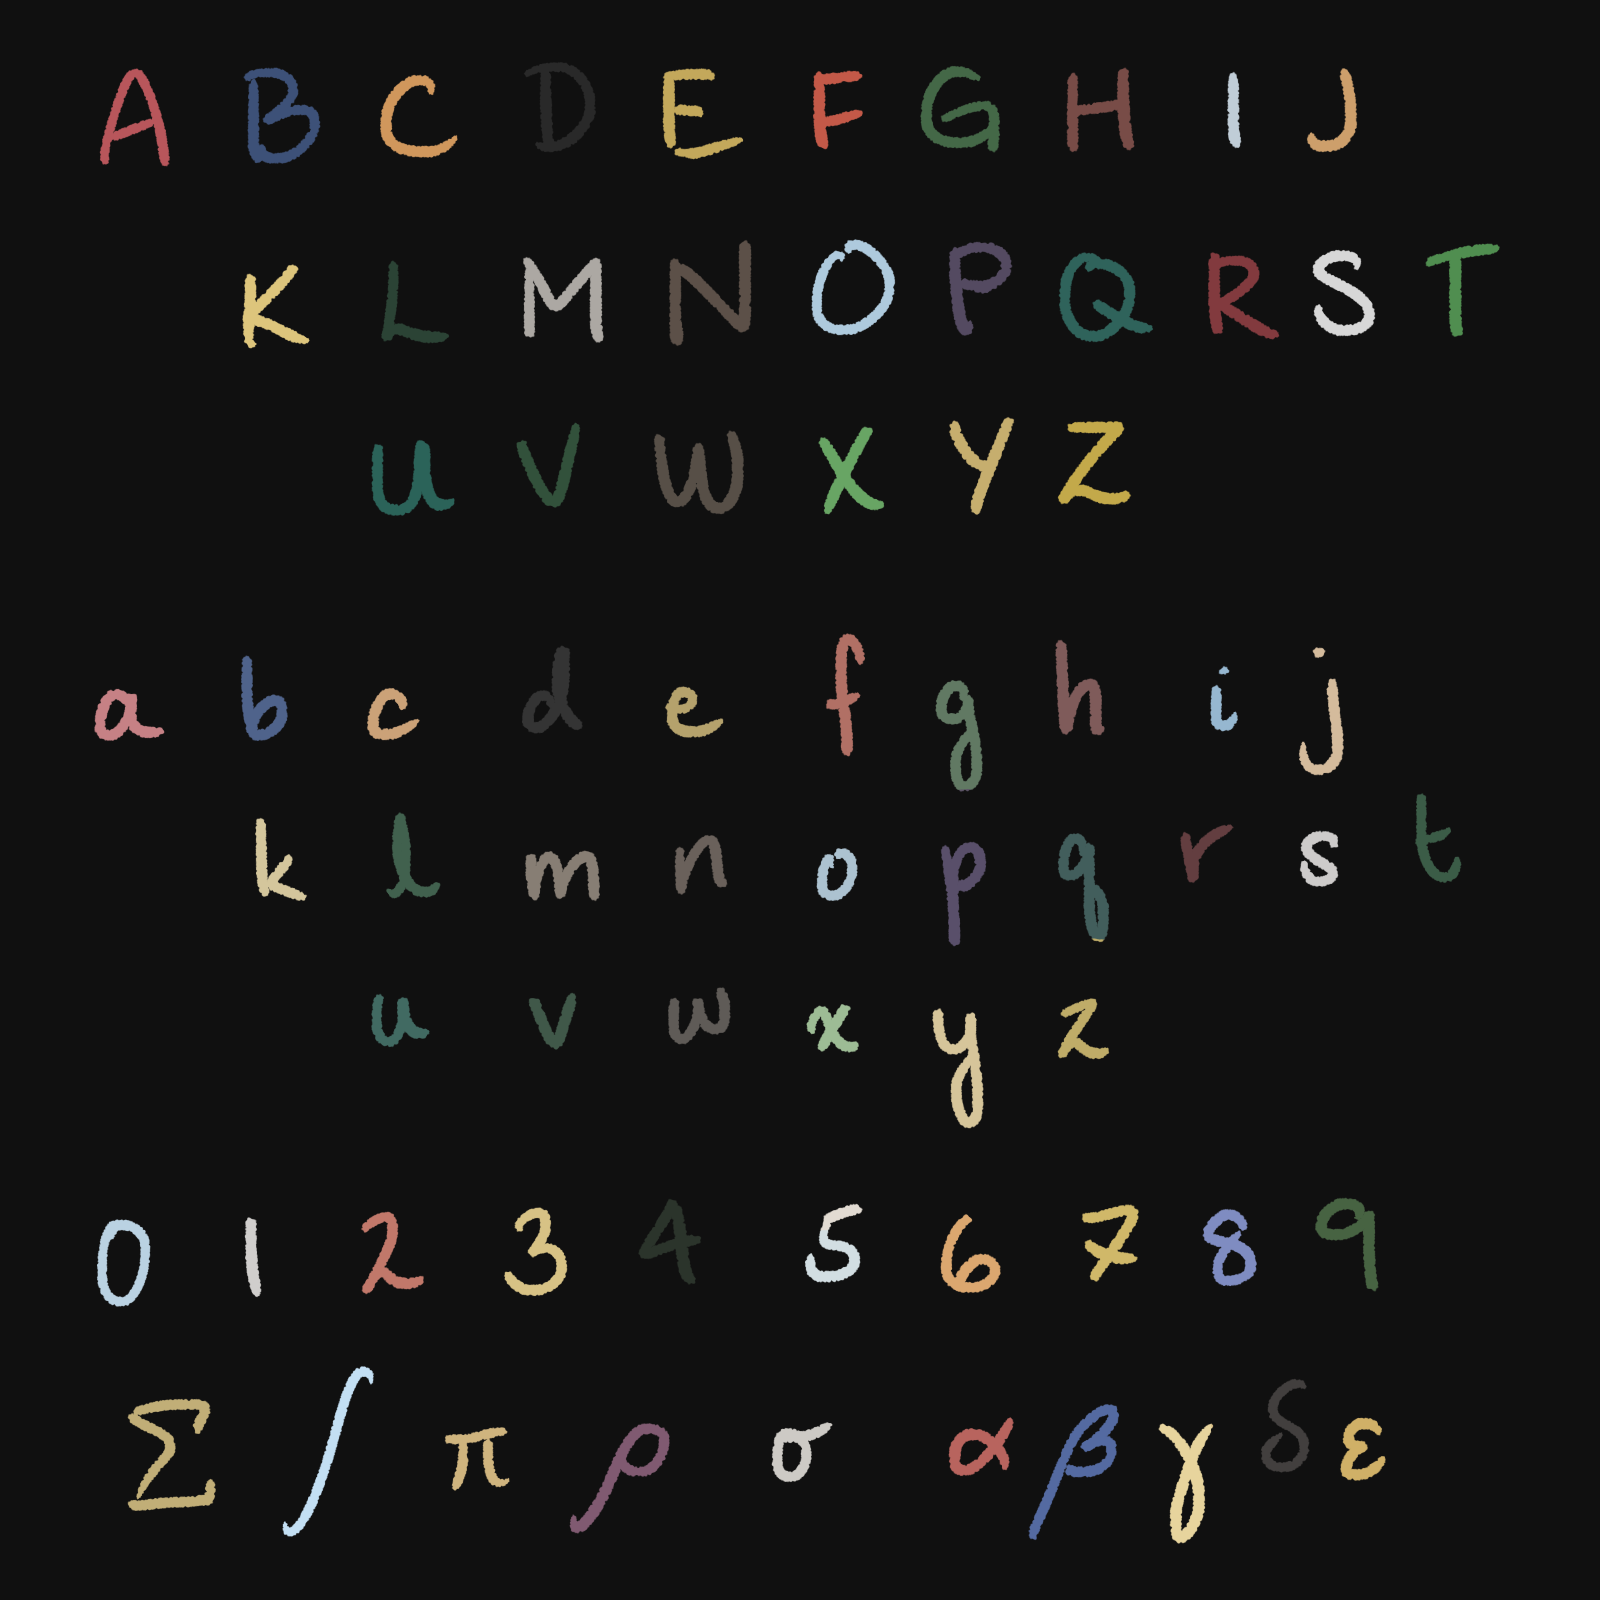 A B C D E F G H I J
K L M N O P Q R S T
U V W X Y Z
a b c d e f g h i j
k l m n o p q r s t
u v w x y z
0 1 2 3 4 5 6 7 8 9
Σ ∫ π ρ σ α β γ δ ε